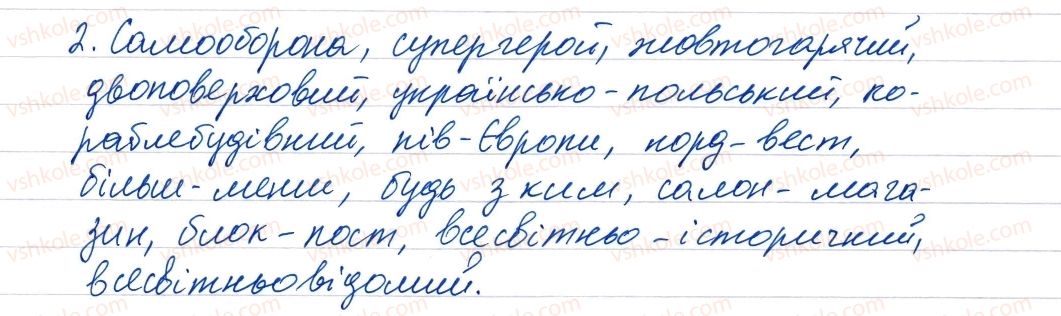 2. Самооборона, супергерой, жовтогарячий,
двоповерховий, українсько-польський, ко-
раблебудівний, пів-Європи, норд-вест,
більш-менш, будь з ким, салон-мага-
зин, блок-пост, всесвітньо-історичний,
всесвітньовідомий.